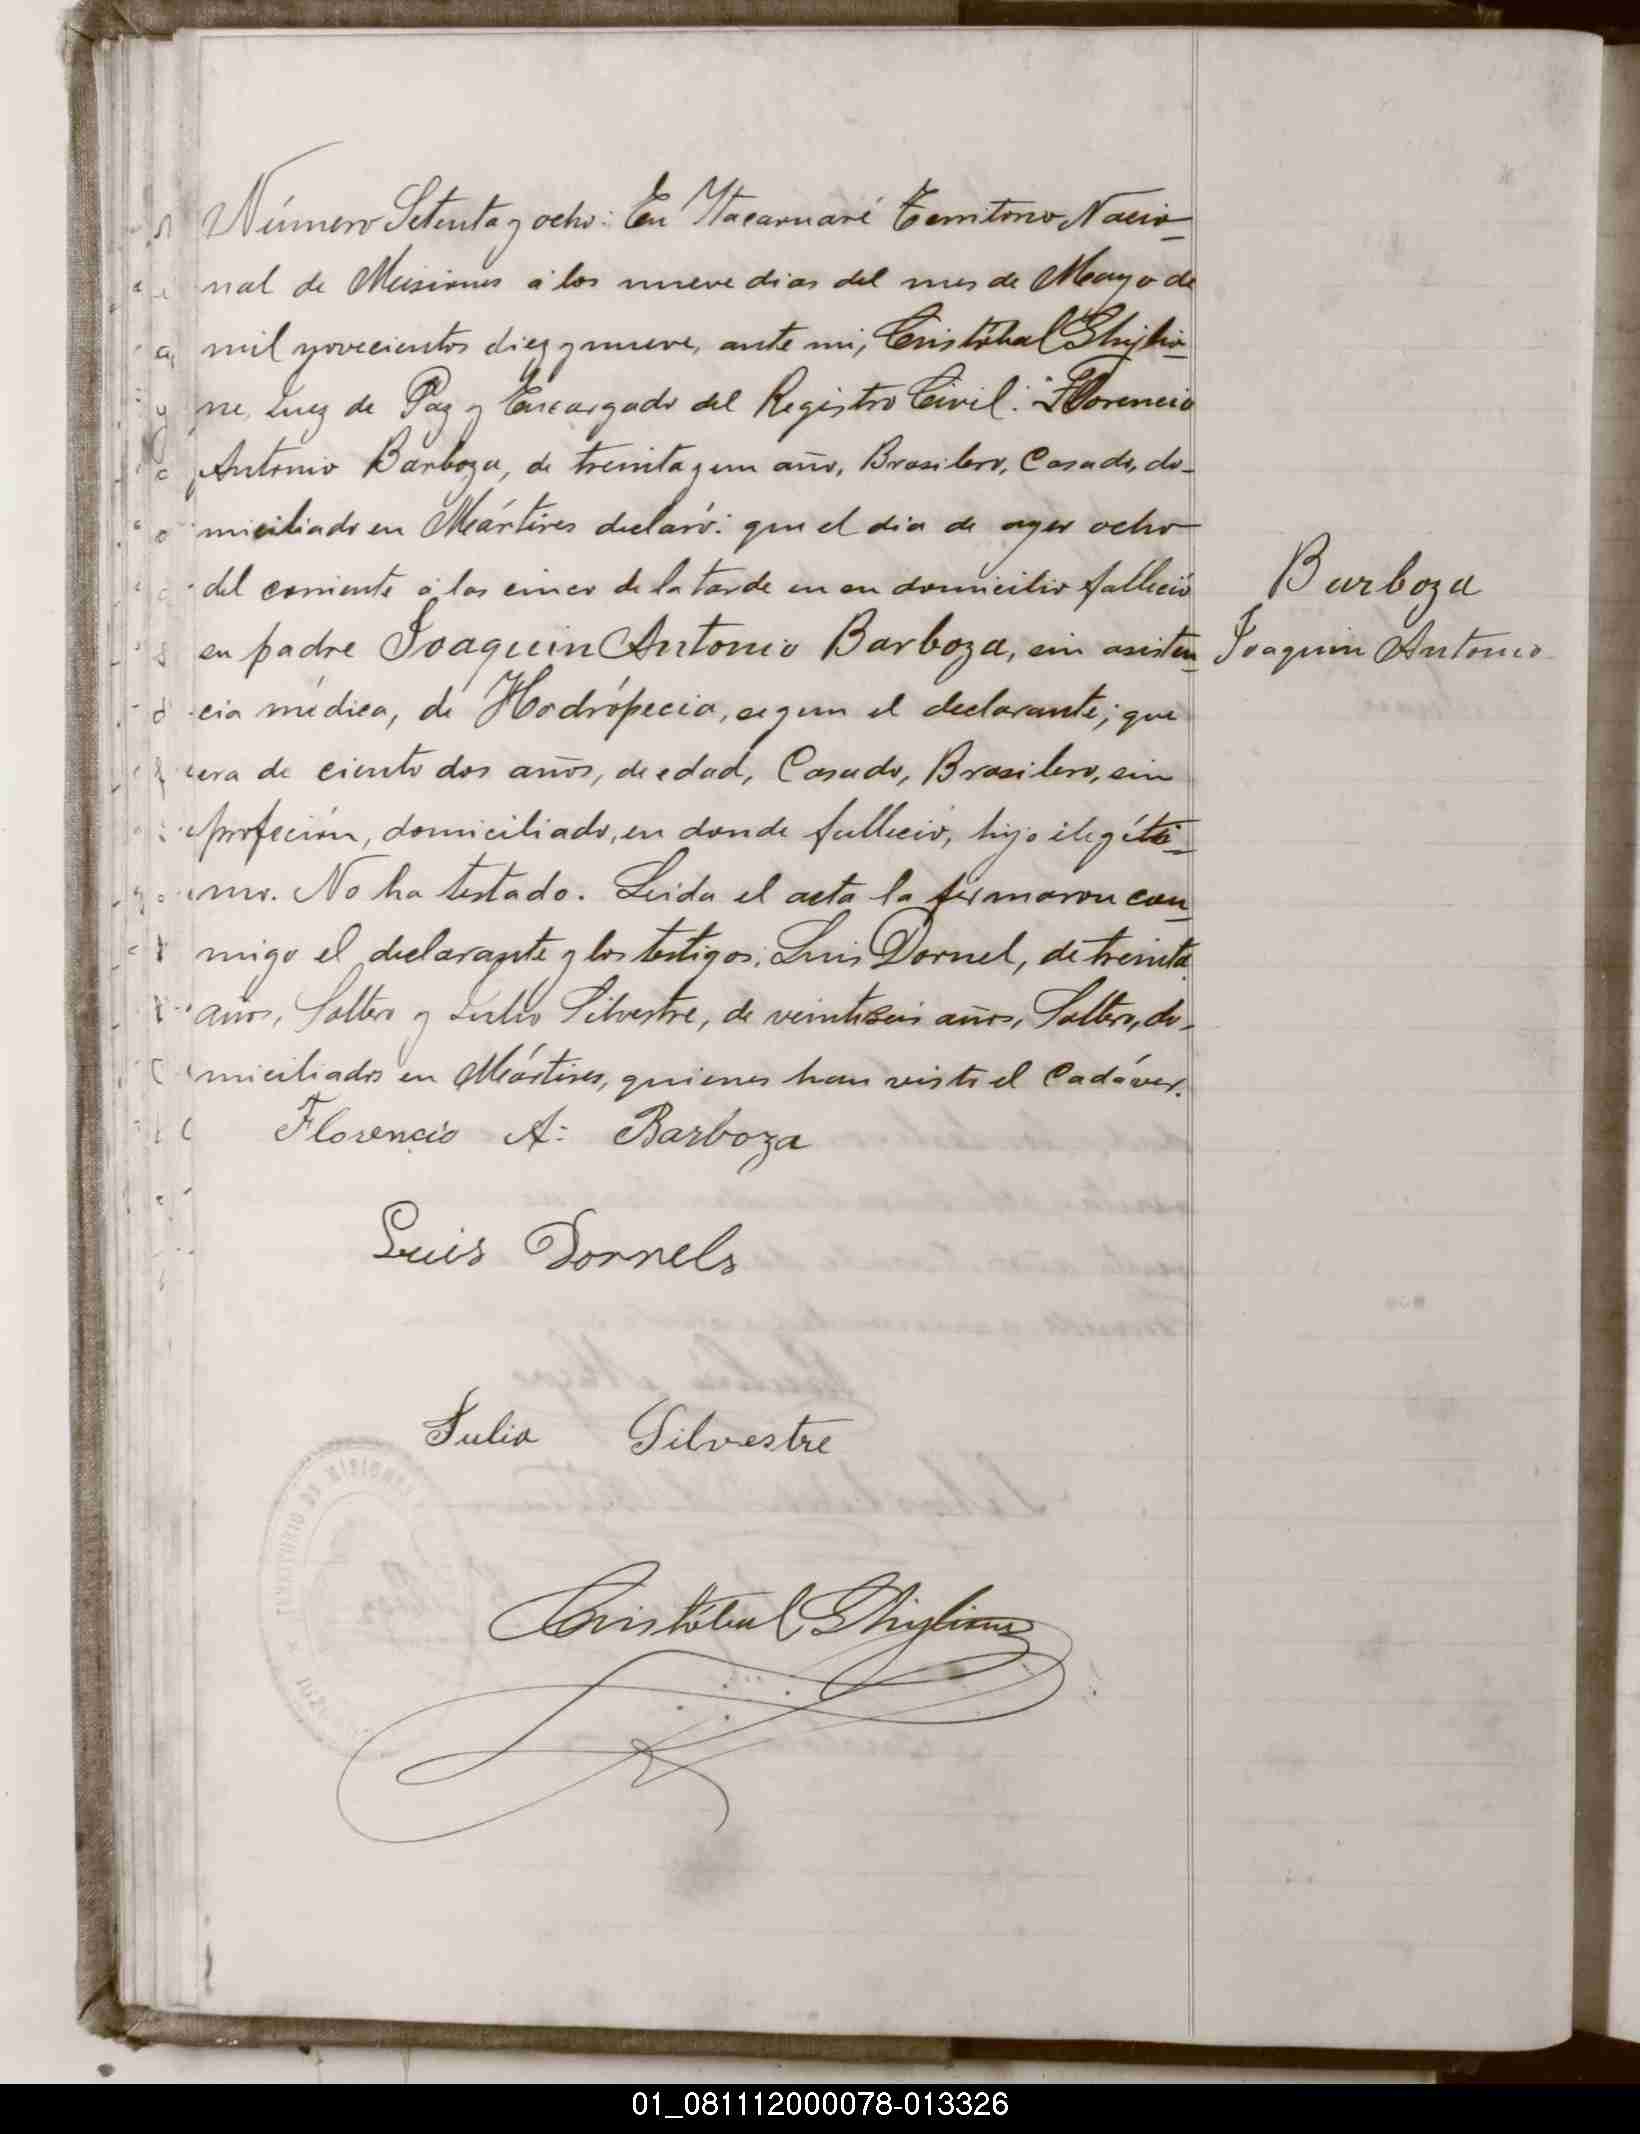 Número Setenta y ocho: En Itacaruaré Territorio Nacio-
nal de Misiones á los nueve dias del mes de Mayo de
mil novecientos diez y nueve, ante mi, Cristóbal Ghiglio-
ne, Juez de Paz y Encargado del Registro Civil: Florencio
Antonio Barboza, de treinta y un año, Brasilero, Casado, do-
miciliado en Mártires declaró: que el dia de ayer ocho
del corriente á las cinco de la tarde en su domicilio falleció
su padre Joaquin Antonio Barboza, sin asisten-
cia médica, de Hodrópecia, segun el declarante; que
era de ciento dos años, de edad, Casado, Brasilero, sin
profeción, domiciliado, en donde fallecio, hijo ilegíti-
mo. No ha testado. Leida el acta la firmaron con-
migo el declarante y los testigos: Luis Dornel, de treinta
años, Soltero y Julio Silvestre, de veintiseis años, Soltero, do-
miciliados en Mártires, quienes han visto el Cadáver.
Barboza
Joaquin Antonio
Florencio A: Barboza
Luis Dornels
Julio Silvestre
TERRITORIO DE MISIONES
Cristóbal Ghiglione
01_081112000078-013326